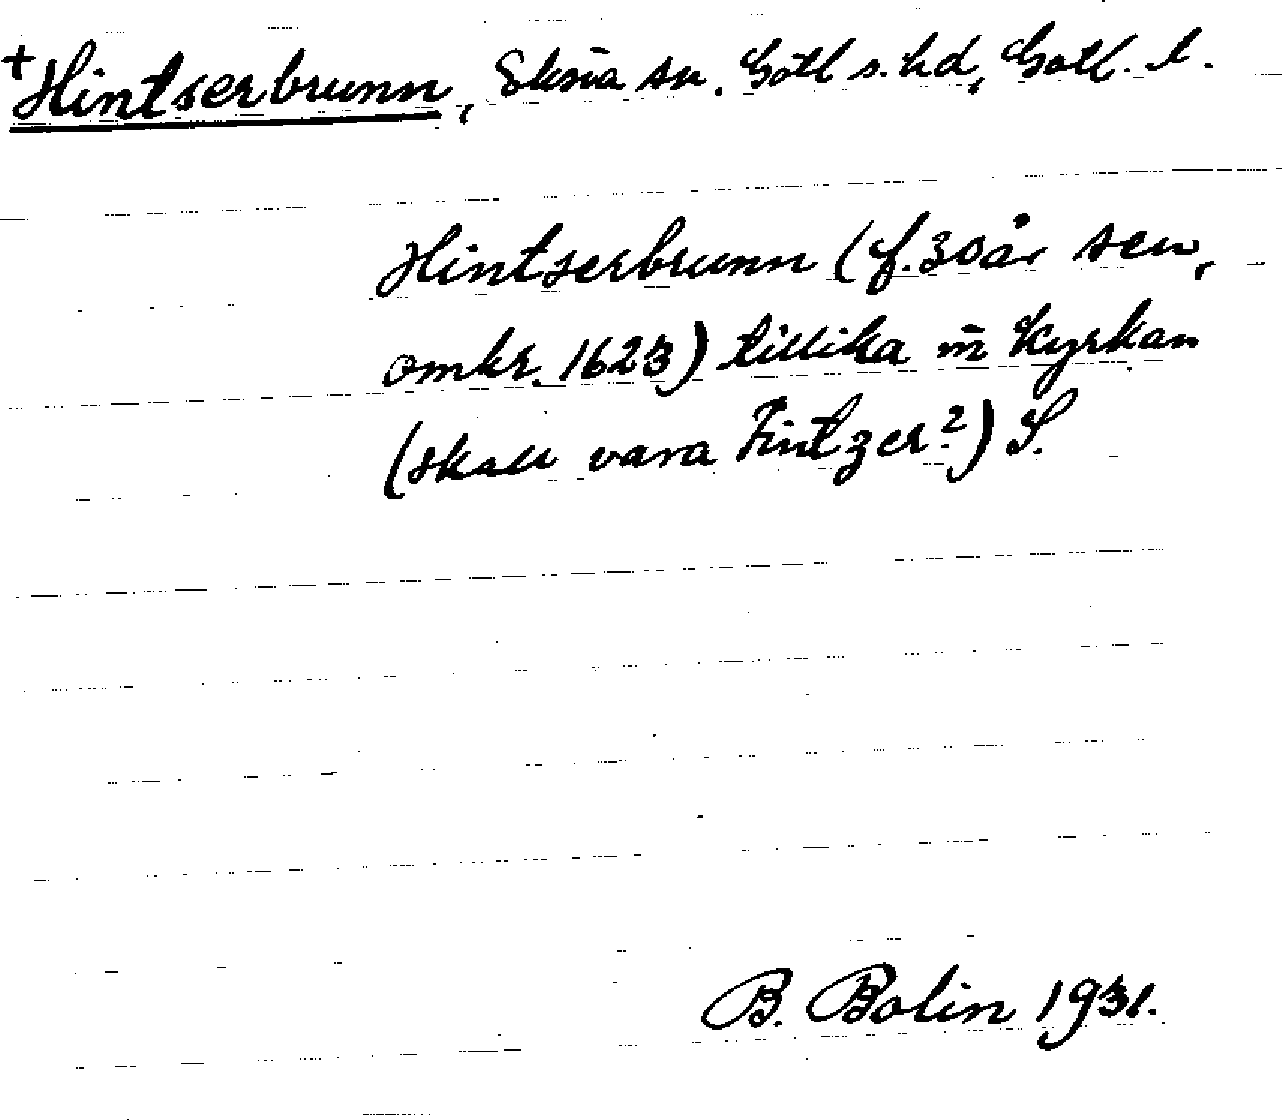 +Hintserbrunn, Eksta sn. Gotl s. hd, Gotl. l.
Hintserbrunn (f. 30 år sen,
omkr. 1623) tillika m̄ Kyrkan
(skall vara Fintzer?) S.
B. Bolin 1931.